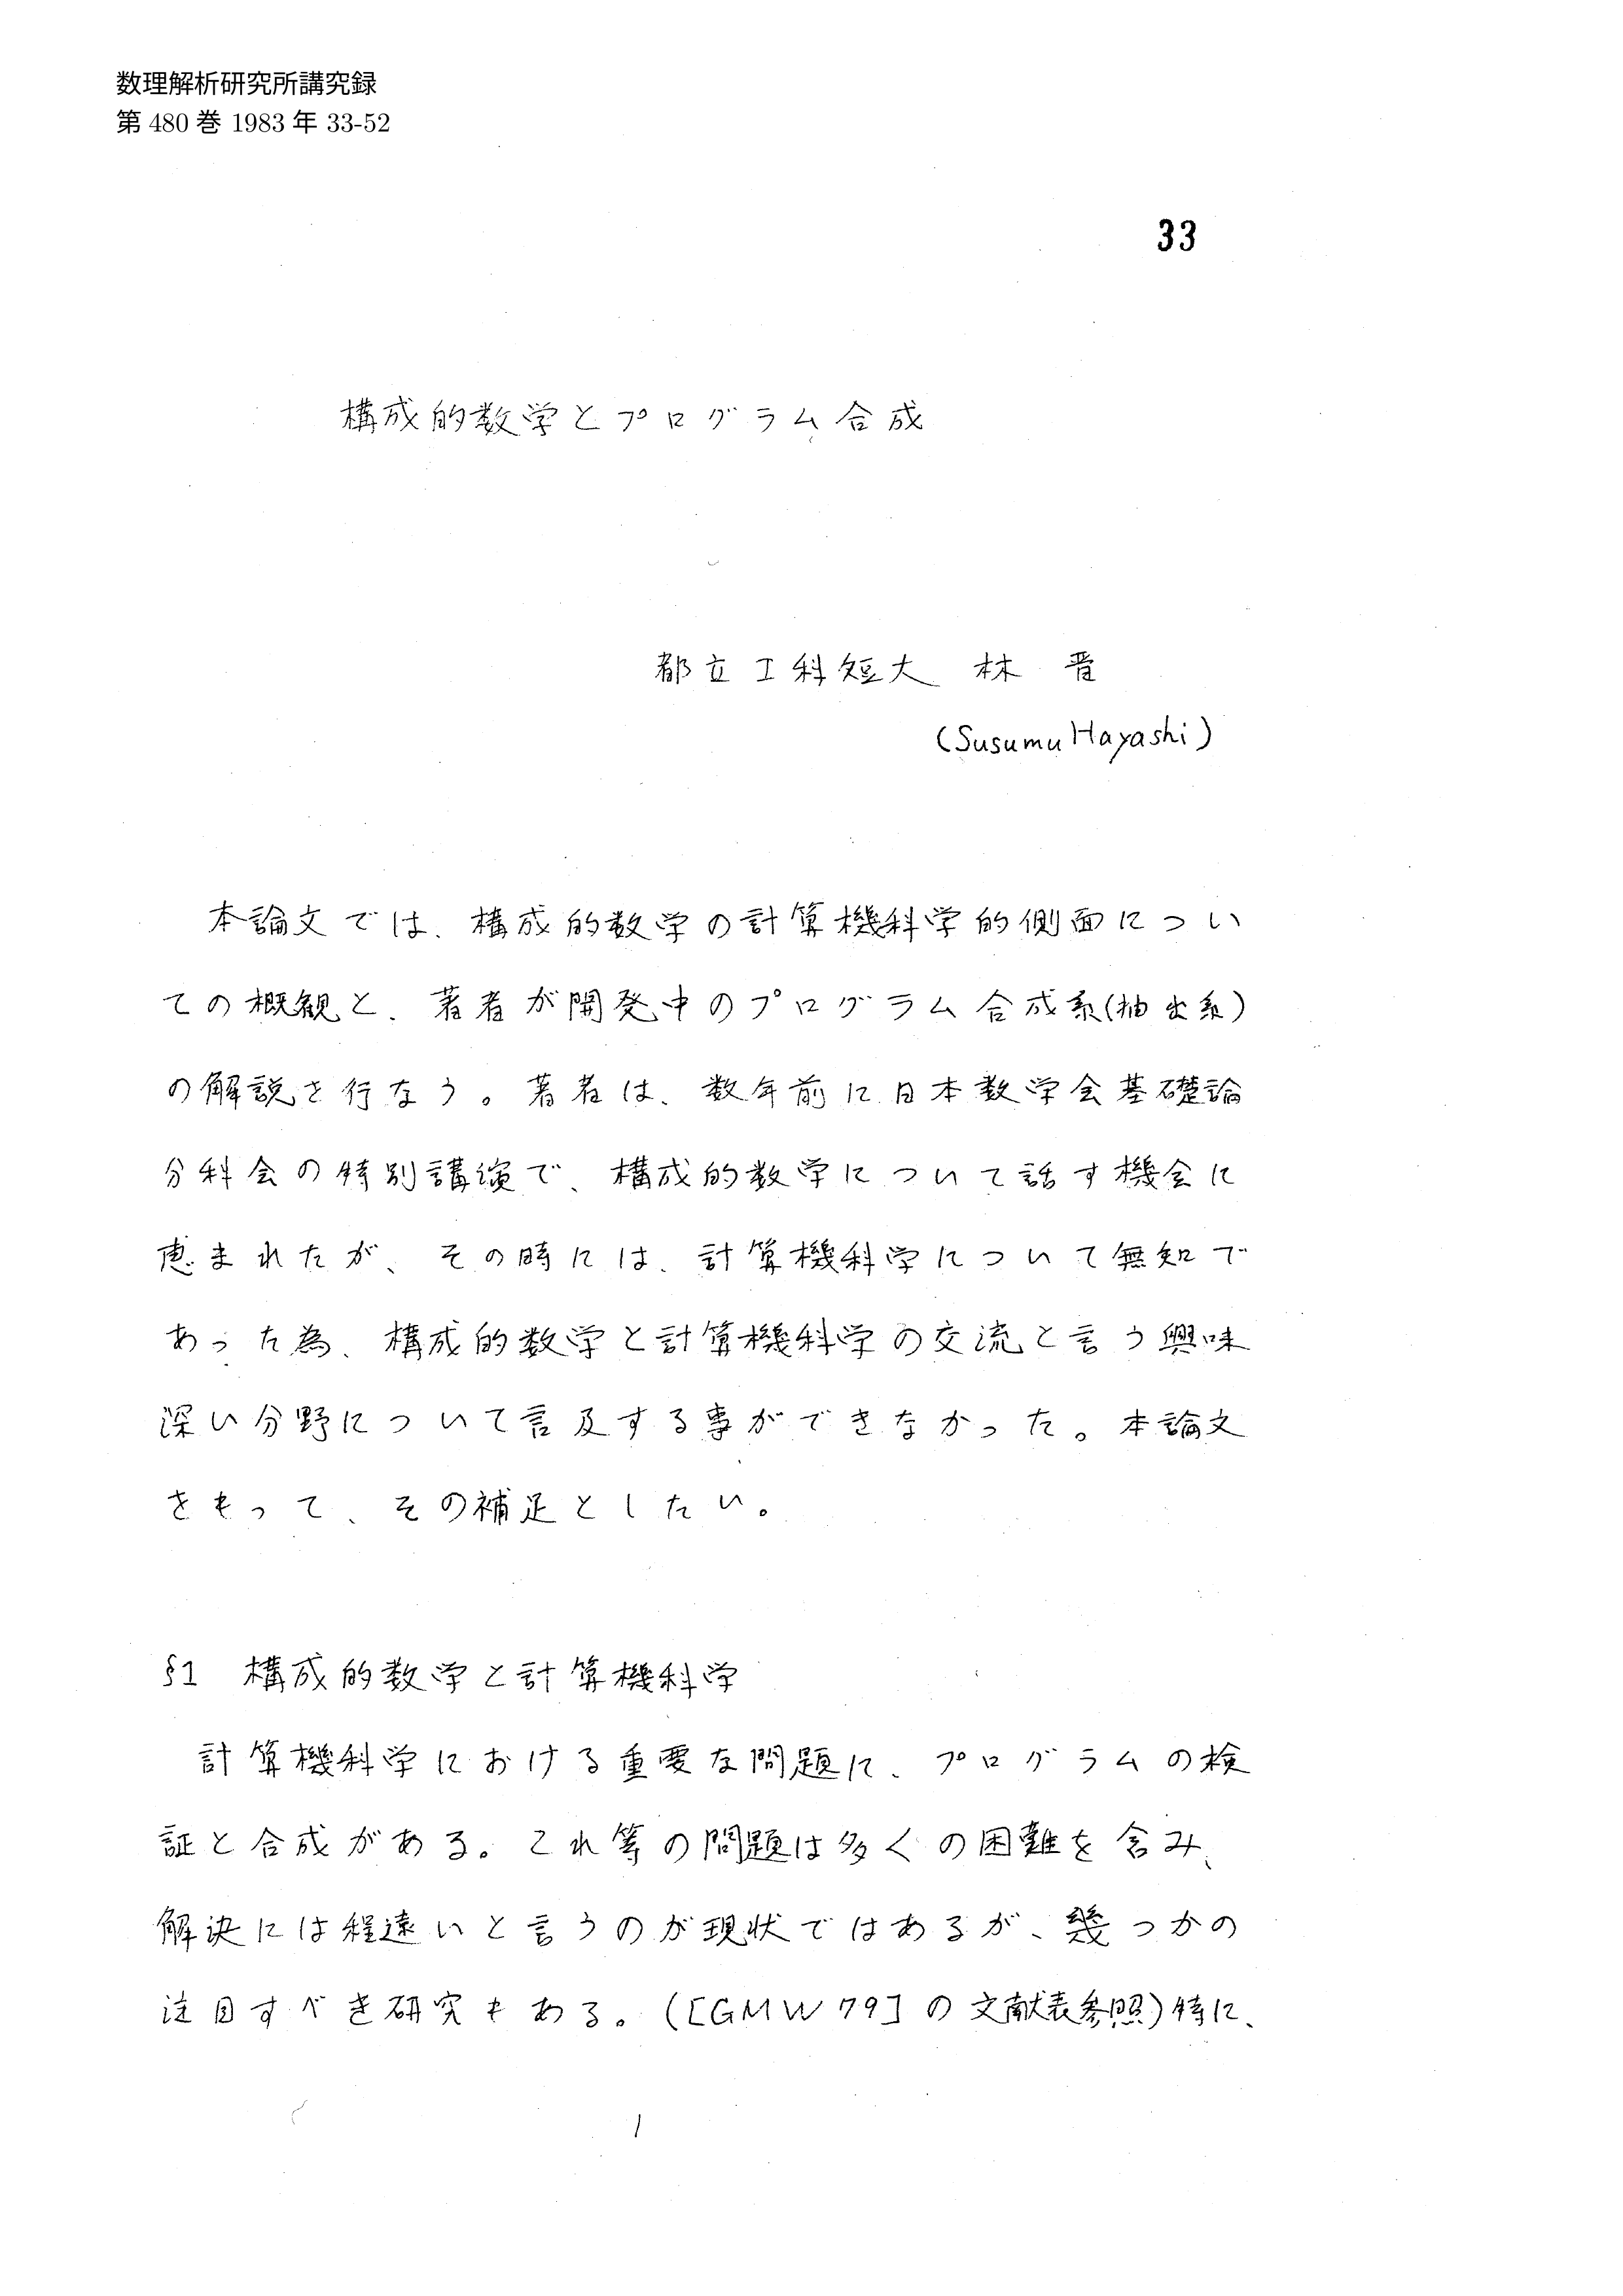 数理解析研究所講究録
第 480 巻 1983 年 33-52
33
構成的数学とプログラム合成
都立工科短大 林 晋
(Susumu Hayashi)
本論文では、構成的数学の計算機科学的側面につい
ての概観と、著者が開発中のプログラム合成系(抽出系)
の解説を行なう。著者は、数年前に日本数学会基礎論
分科会の特別講演で、構成的数学について話す機会に
恵まれたが、その時には、計算機科学について無知で
あった為、構成的数学と計算機科学の交流と言う興味
深い分野について言及する事ができなかった。本論文
をもって、その補足としたい。
§1 構成的数学と計算機科学
計算機科学における重要な問題に、プログラムの検
証と合成がある。これ等の問題は多くの困難を含み、
解決には程遠いと言うのが現状ではあるが、幾つかの
注目すべき研究もある。([GMW 79]の文献表参照)特に、
1